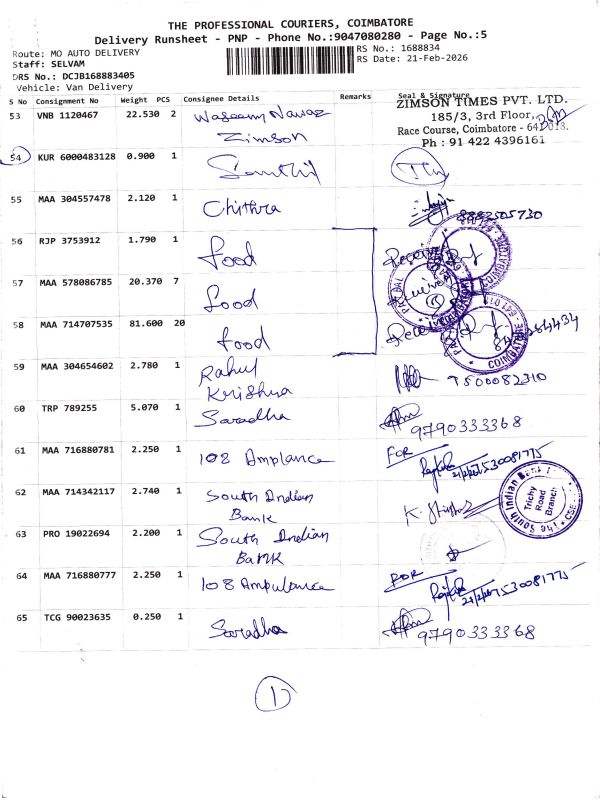 THE PROFESSIONAL COURIERS, COIMBATORE
Delivery Runsheet - PNP - Phone No.:9047080280 - Page No.:5
Route: MO AUTO DELIVERY
RS No.: 1688834
Staff: SELVAM
RS Date: 21-Feb-2026
DRS No.: DCJB168883405
Vehicle: Van Delivery
S No Consignment No Weight PCS Consignee Details Remarks Seal & Signature
53 VNB 1120467 22.530 2 Waseem Nawaz
Zimson
ZIMSON TIMES PVT. LTD.
185/3, 3rd Floor,
Race Course, Coimbatore - 641 018.
Ph : 91 422 4396161
54 KUR 6000483128 0.900 1 Senthil
55 MAA 304557478 2.120 1 Chithra
56 RJP 3753912 1.790 1 food Received
57 MAA 578086785 20.370 7 food Received
58 MAA 714707535 81.600 20 food Received
COIMBATORE
59 MAA 304654602 2.780 1 Rahul
Krishna
60 TRP 789255 5.070 1 Saradha 9790333368
61 MAA 716880781 2.250 1 108 Amplance FOR
62 MAA 714342117 2.740 1 South Indian
Bank
The South Indian Bank
Trichy
Road
Branch
63 PRO 19022694 2.200 1 South Indian
Bank
64 MAA 716880777 2.250 1 108 Ampulance FOR
65 TCG 90023635 0.250 1 Saradha 9790333368
1